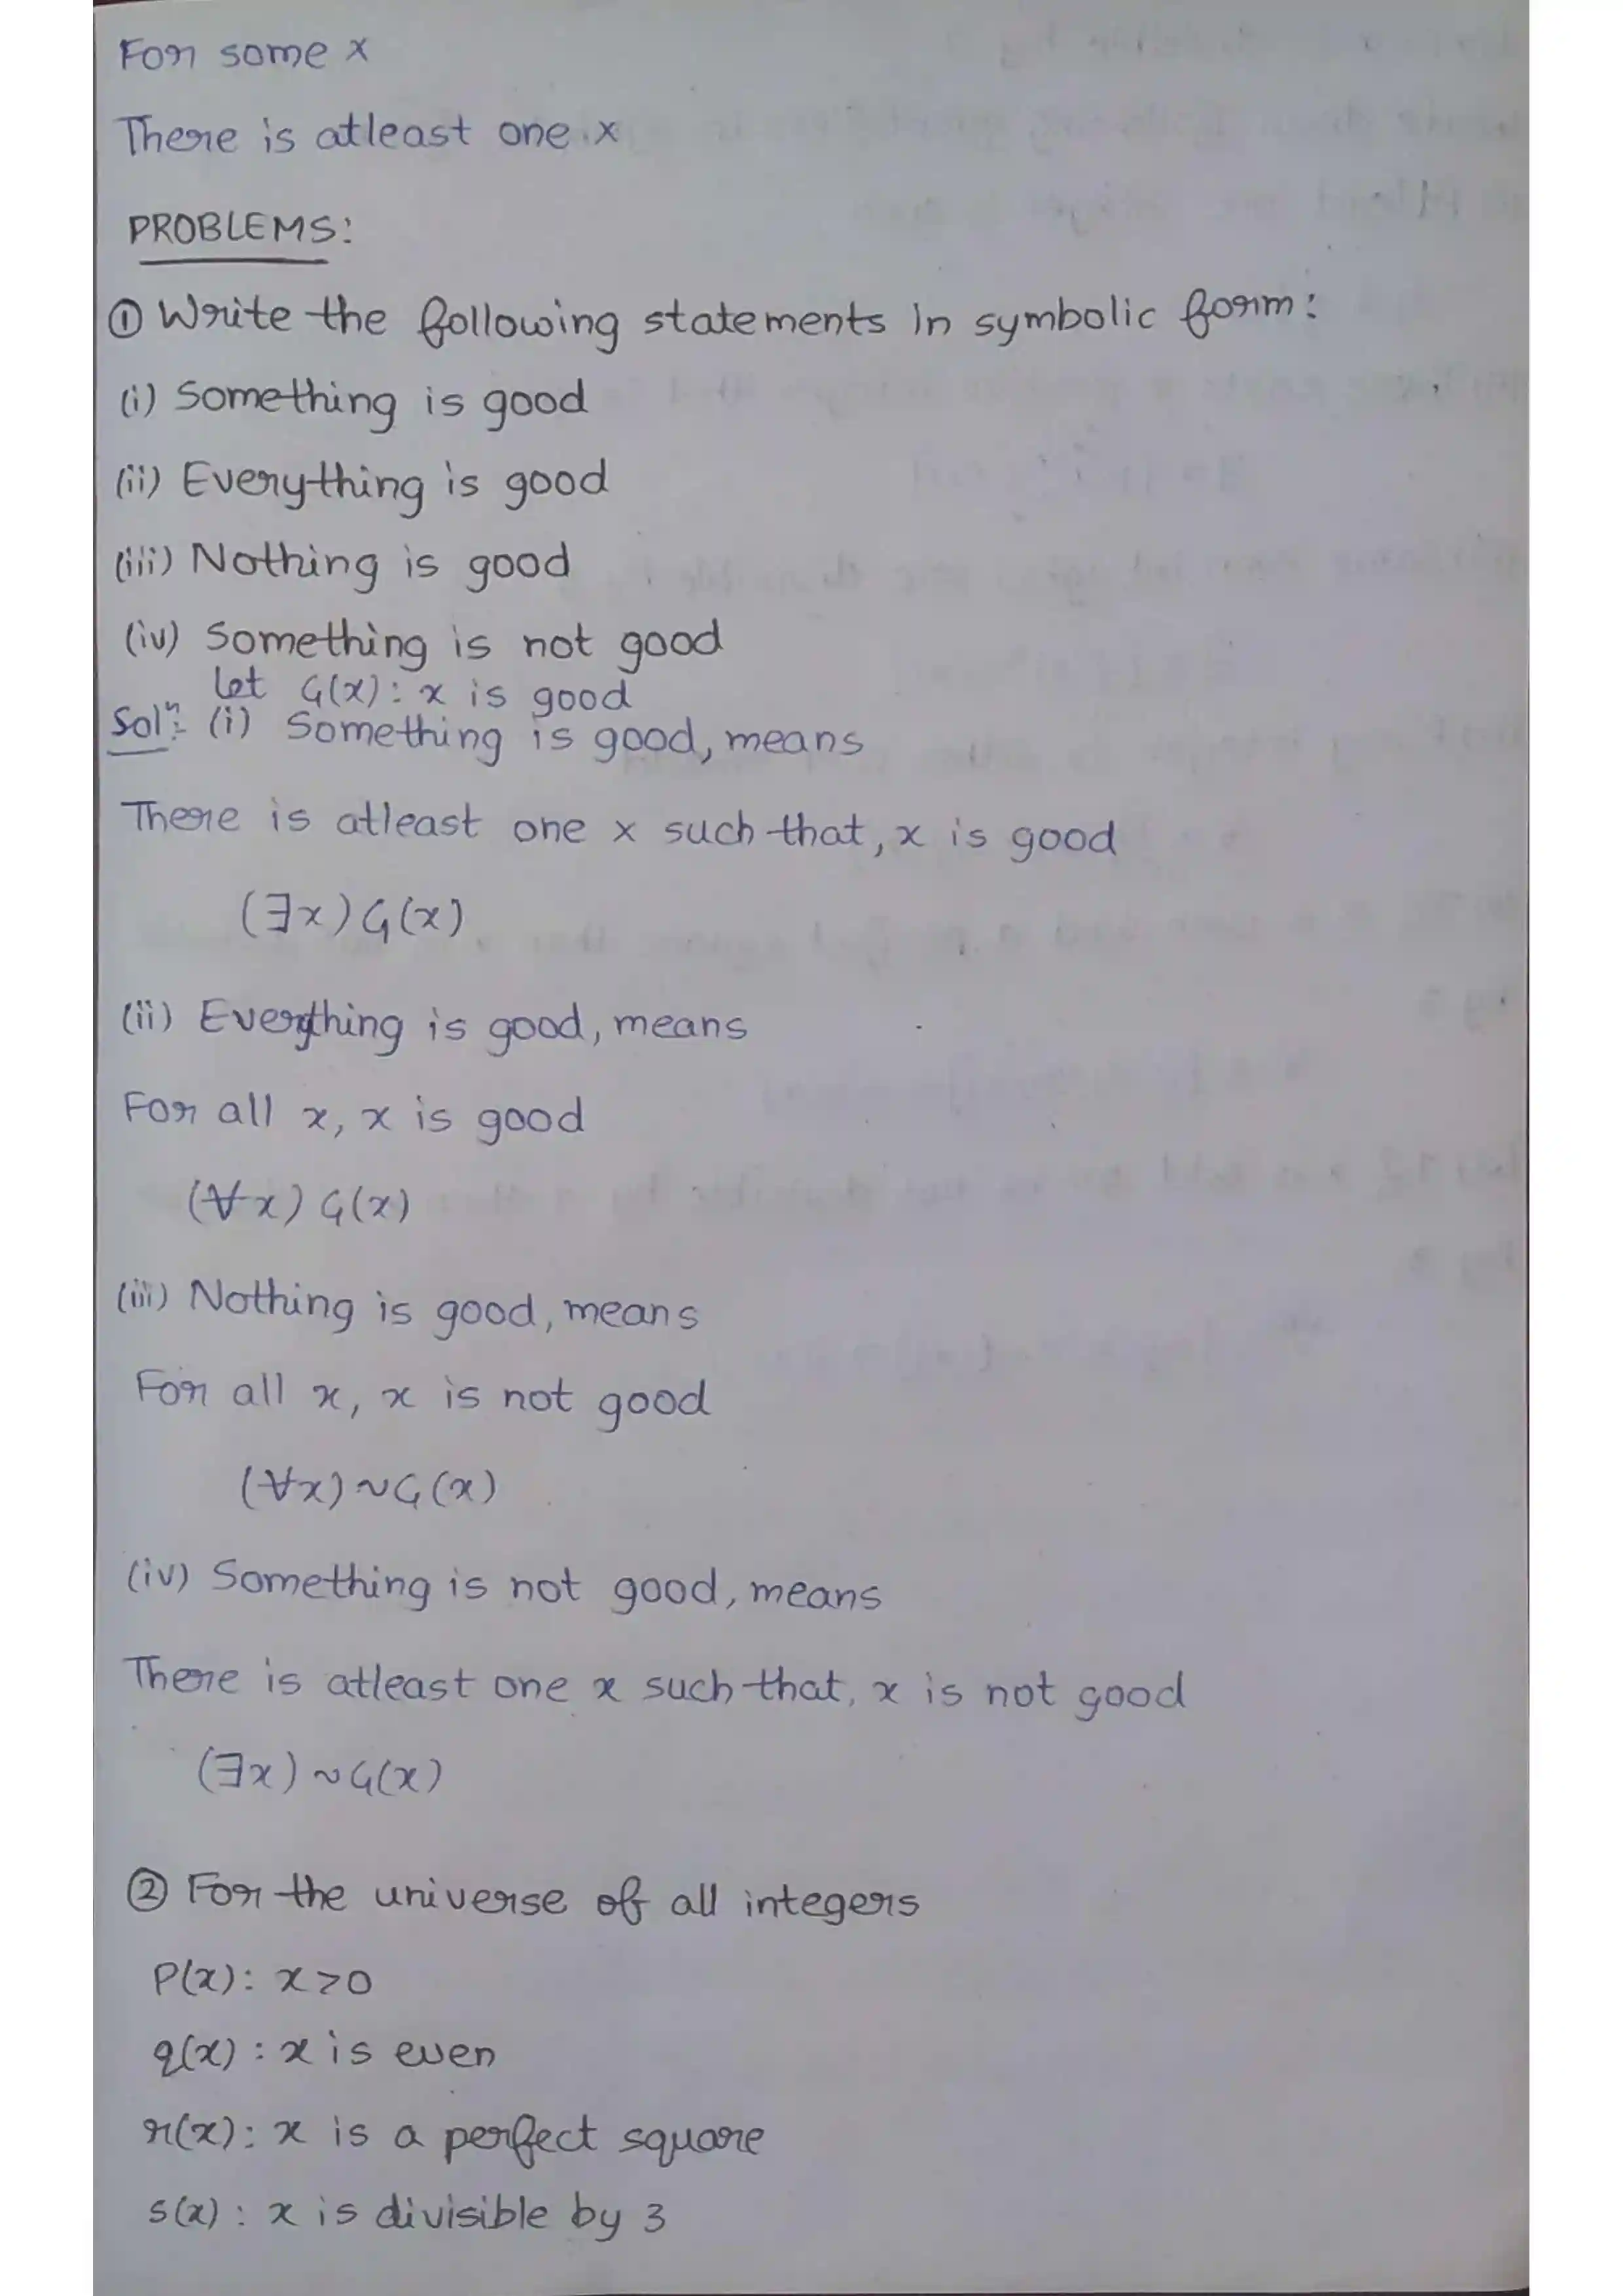 For some x
There is atleast one x
PROBLEMS:
① Write the following statements in symbolic form:
(i) Something is good
(ii) Everything is good
(iii) Nothing is good
(iv) Something is not good
let G(x): x is good
Solⁿ: (i) Something is good, means
There is atleast one x such that, x is good
(∃x) G(x)
(ii) Everything is good, means
For all x, x is good
(∀x) G(x)
(iii) Nothing is good, means
For all x, x is not good
(∀x) ~G(x)
(iv) Something is not good, means
There is atleast one x such that, x is not good
(∃x) ~G(x)
② For the universe of all integers
P(x): x>0
q(x): x is even
r(x): x is a perfect square
s(x): x is divisible by 3